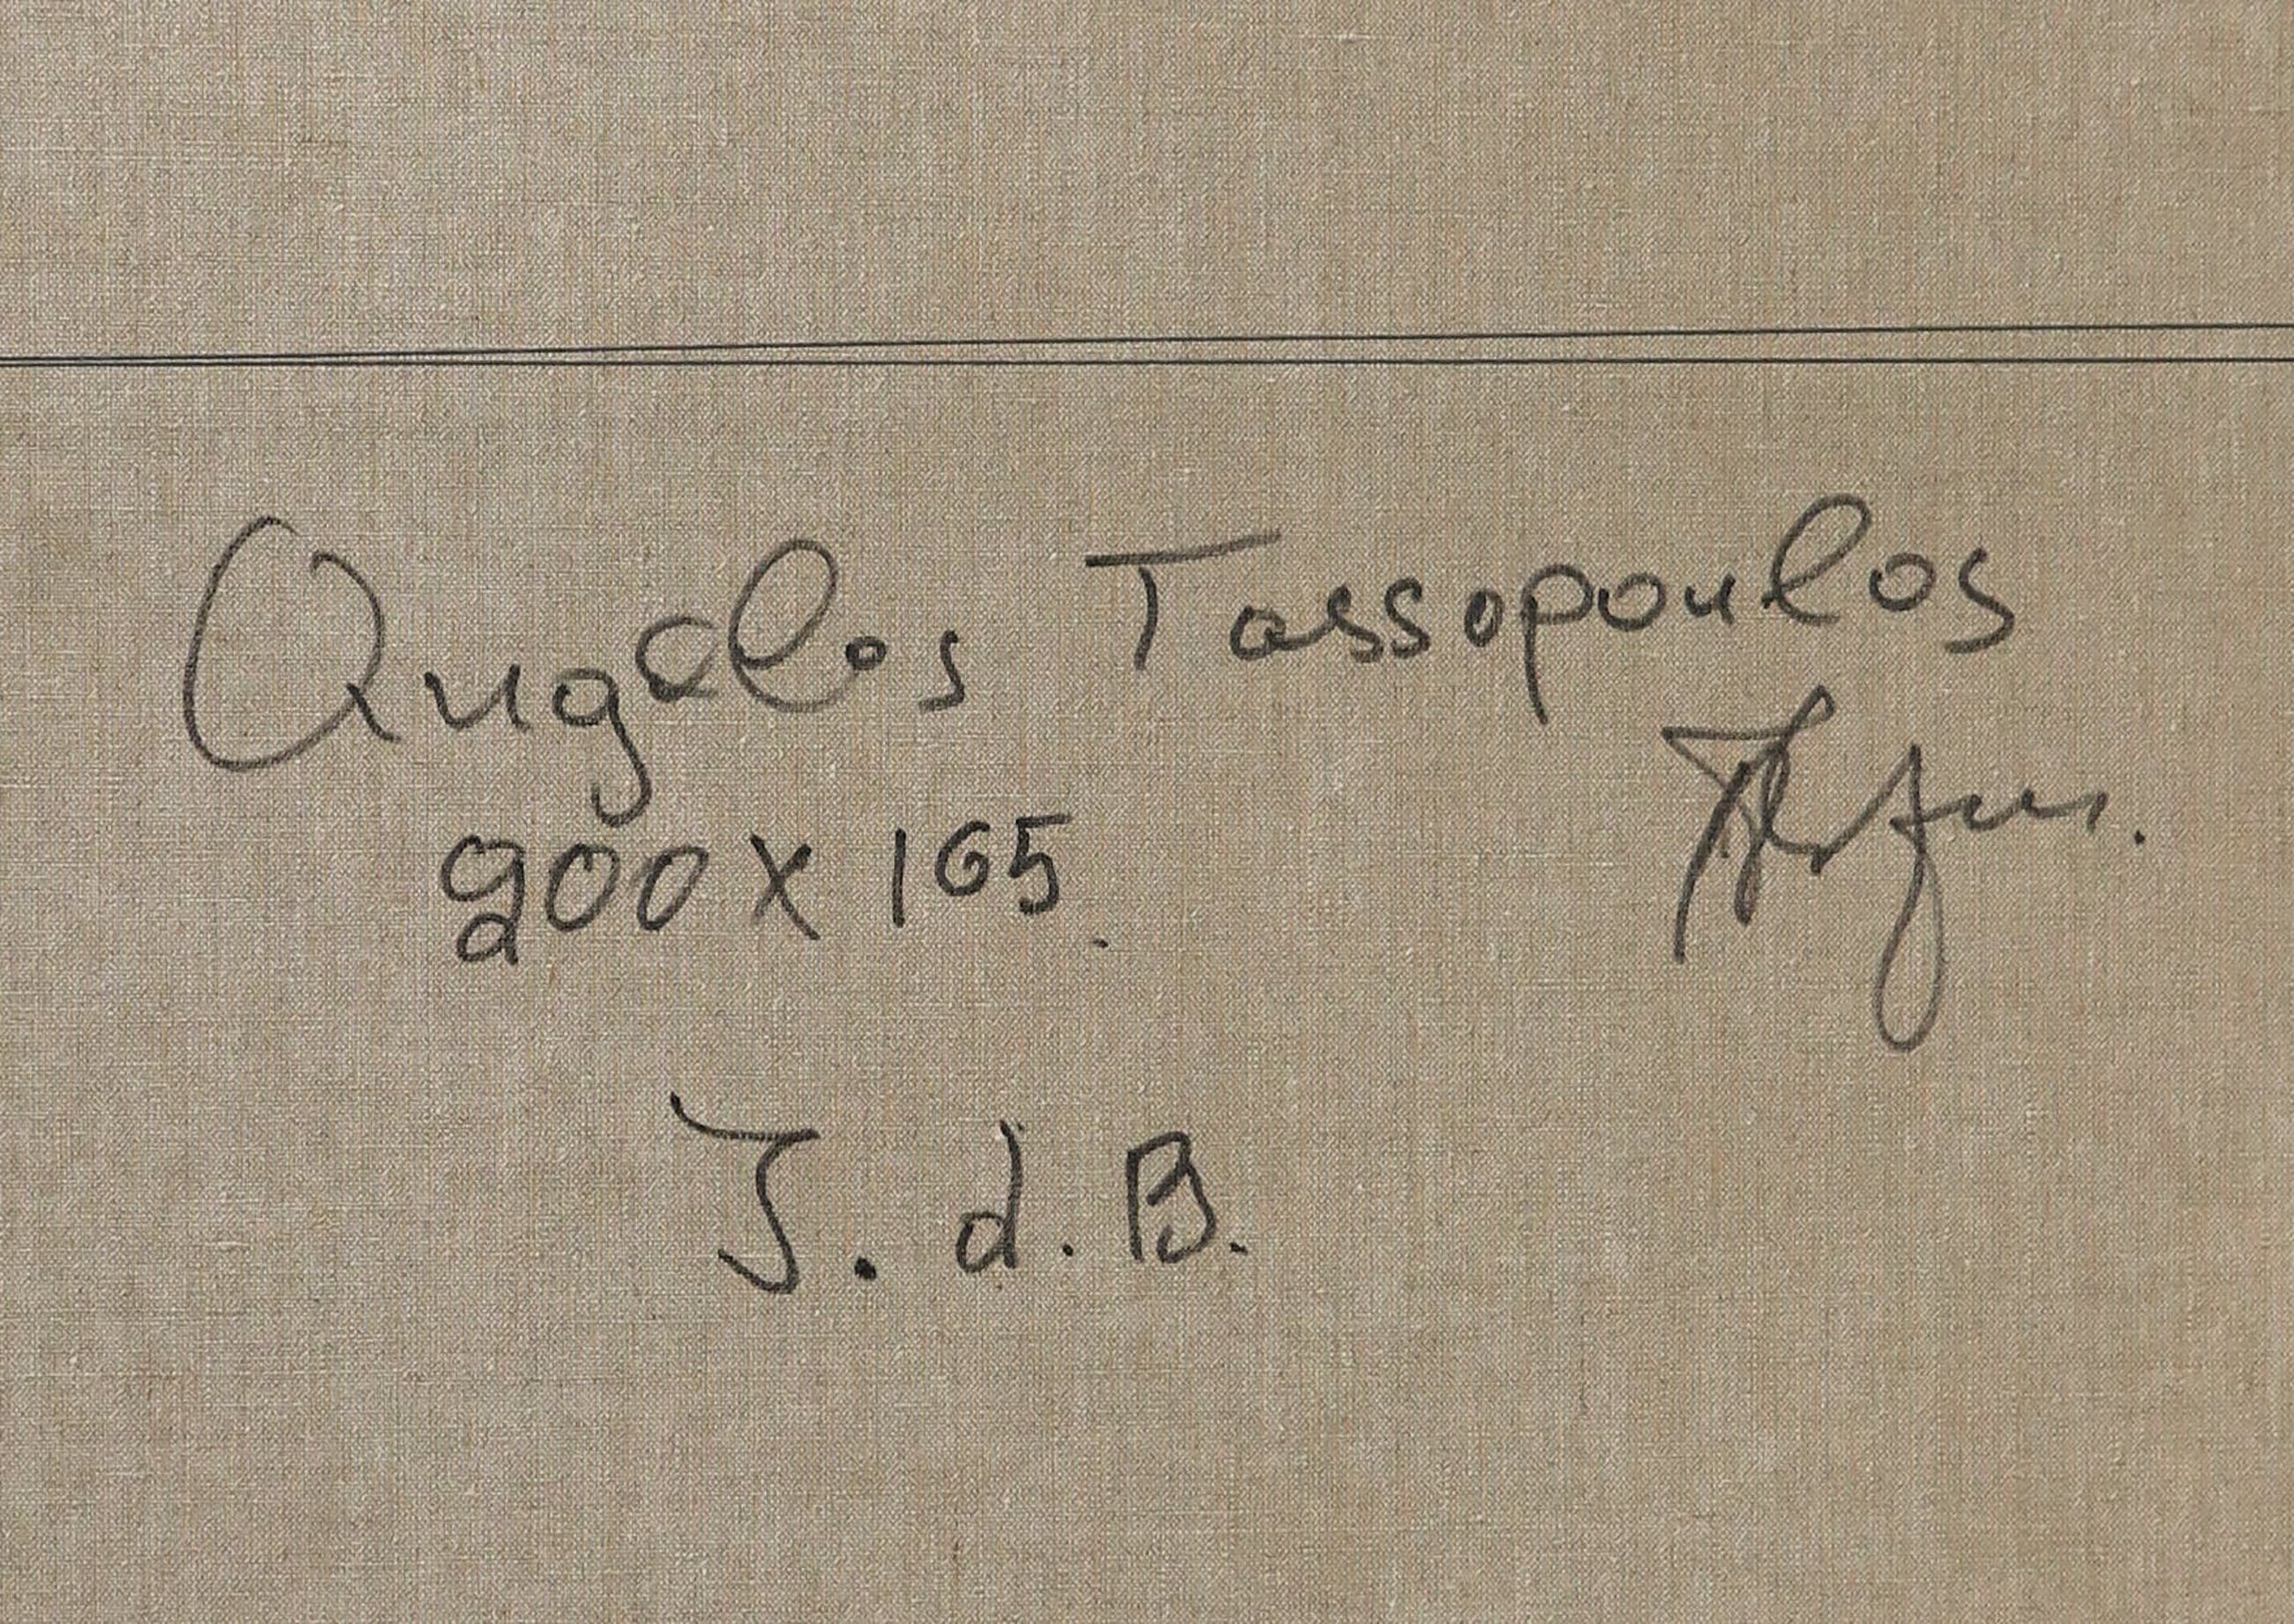 Angelos Tassopoulos
200 X 165.
J. d. B.